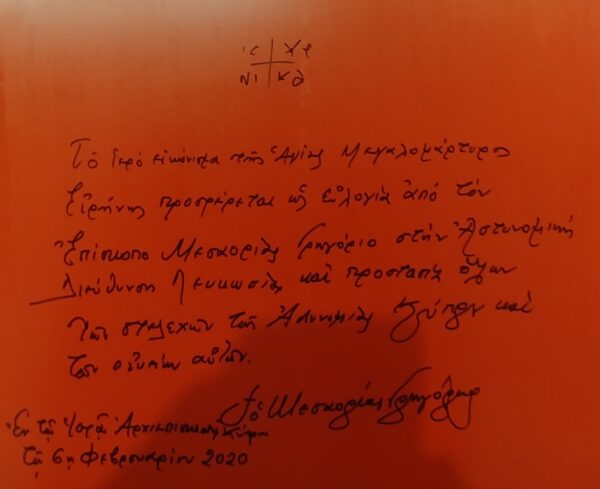 ις χς
ΝΙ ΚΑ
Τὸ ἱερό εἰκόνισμα τῆς Ἁγίας Μεγαλομάρτυρος
Εἰρήνης προσφέρεται ὡς εὐλογία ἀπό τόν
Ἐπίσκοπο Μεσαορίας Γρηγόριο στήν Ἀστυνομική
Διεύθυνση Λευκωσίας καί προστασία ὅλων
τῶν στελεχῶν τῆς Ἀστυνομίας Κύπρου καί
τῶν οἰκιῶν αὐτῶν.
†ὁ Μεσαορίας Γρηγόριος
Ἐν τῇ Ἱερᾷ Ἀρχιεπισκοπῇ Κύπρου
τῇ 6ῃ Φεβρουαρίου 2020